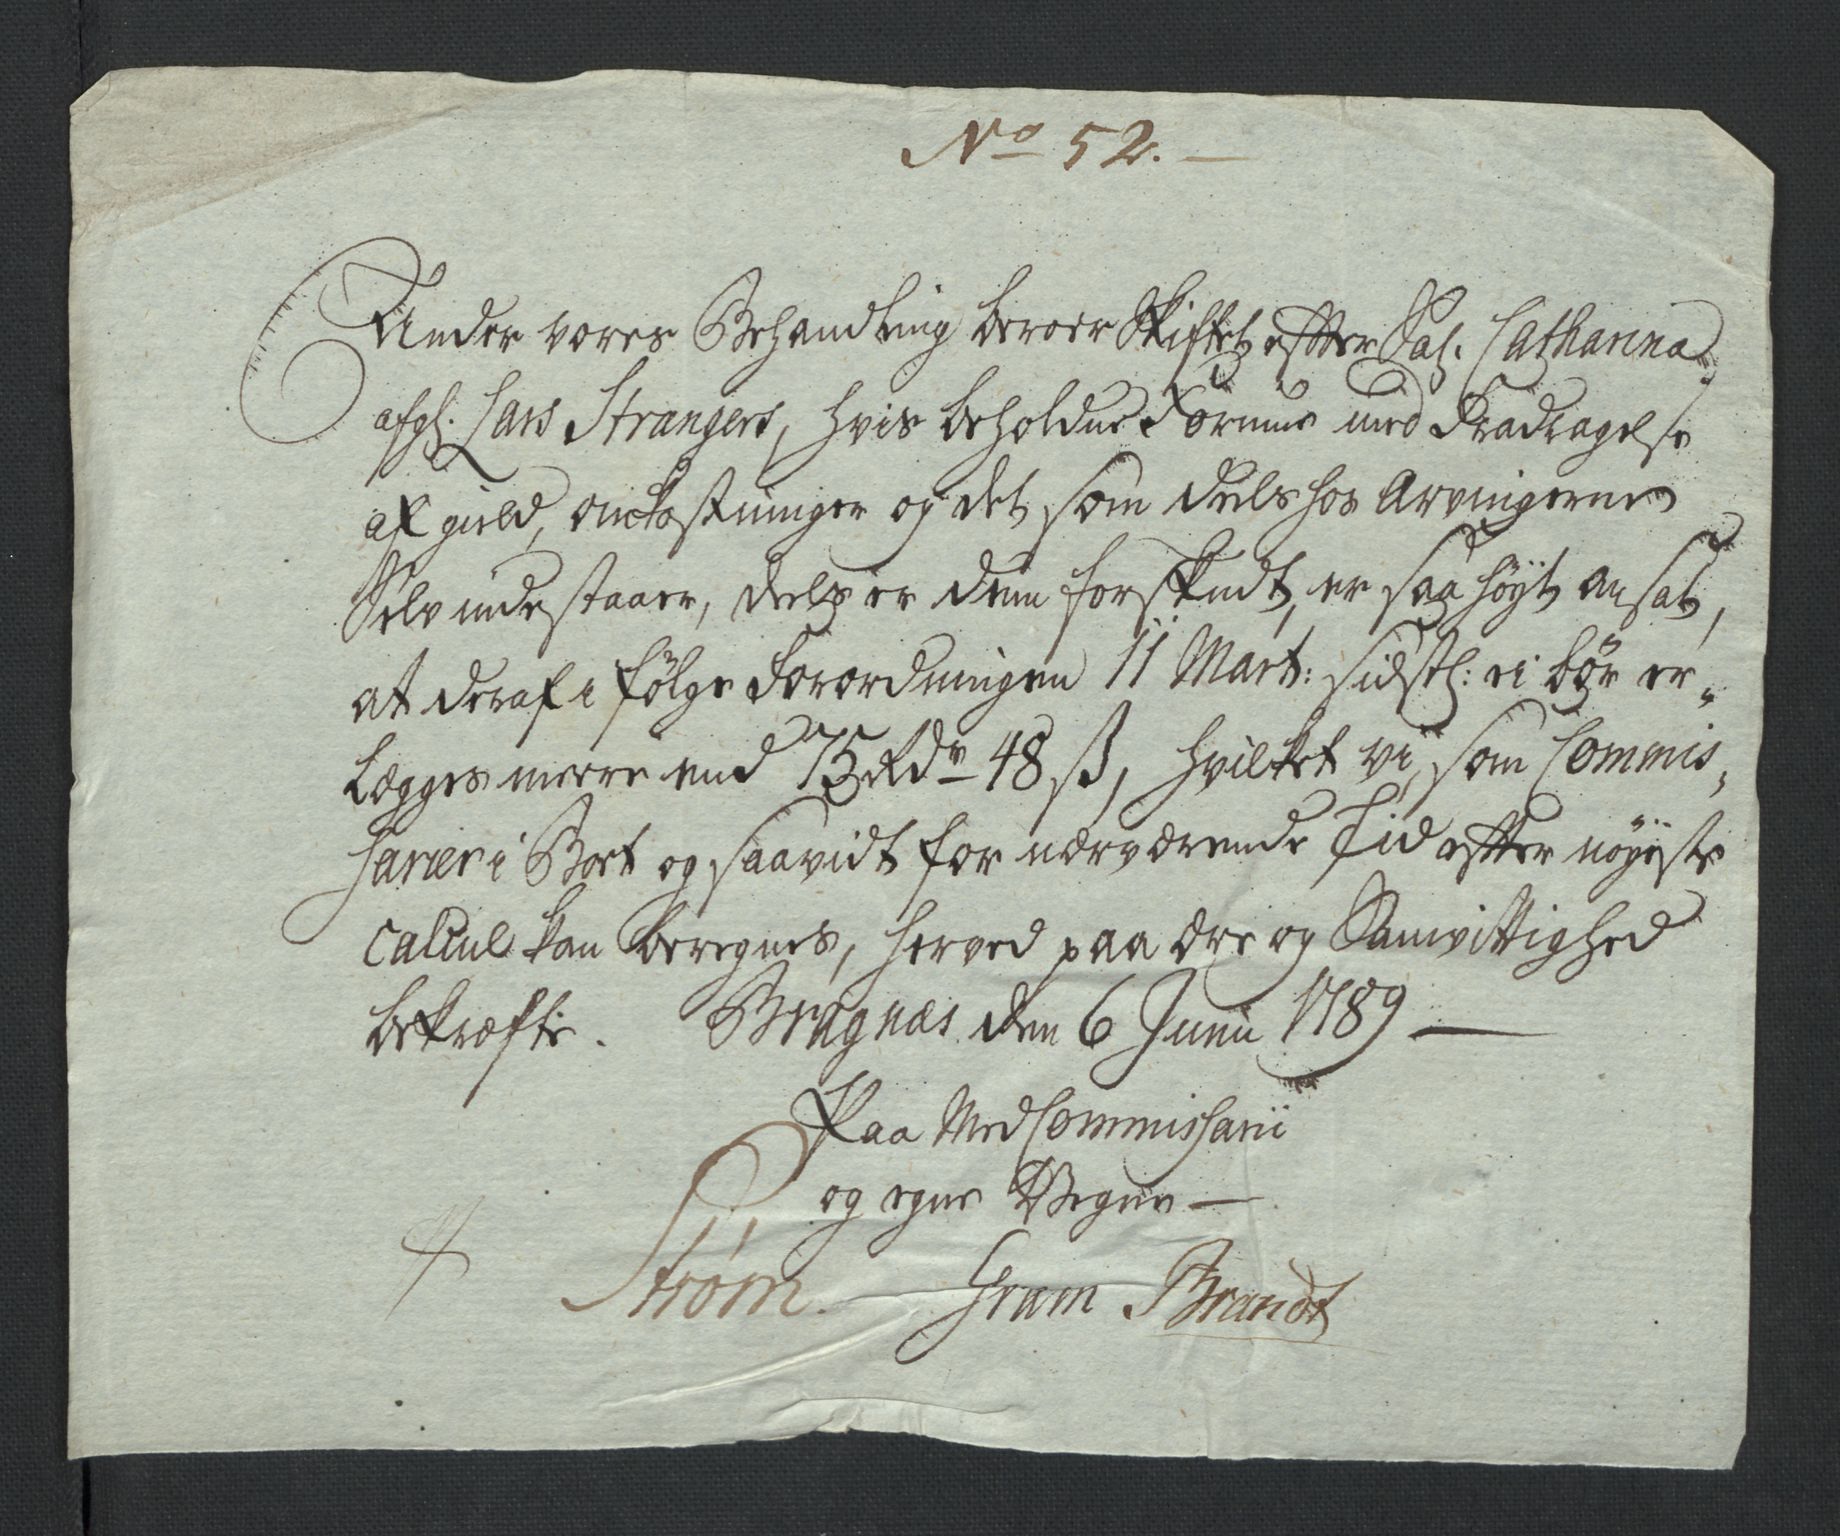 No 52.
Under vores Behandling beroer Skiftet efter Sal. Catharina
afgl. Lars Strangers, hvis beholdne Formue med Fradragelse
af gield, omkostninger og det som deels hos Arvingerne
Selv indestaaer, deels er dem forskudt, er saa höyt ansat,
at deraf i fölge Forordningen 11 Mart: sidstl: ei bör er„
lægges meere end 75 Rdr 48 ß, hvilket vi, som Commis„
sarier i Boet og saavidt for nærværende Tid efter nöyeste
Calcul kan beregnes, herved paa ære og Samvittighed
bekræfte. Bragnæs den 6 Junii 1789
Paa Med Commissarii
og egne Vegne
Strøm. Gram Brandt